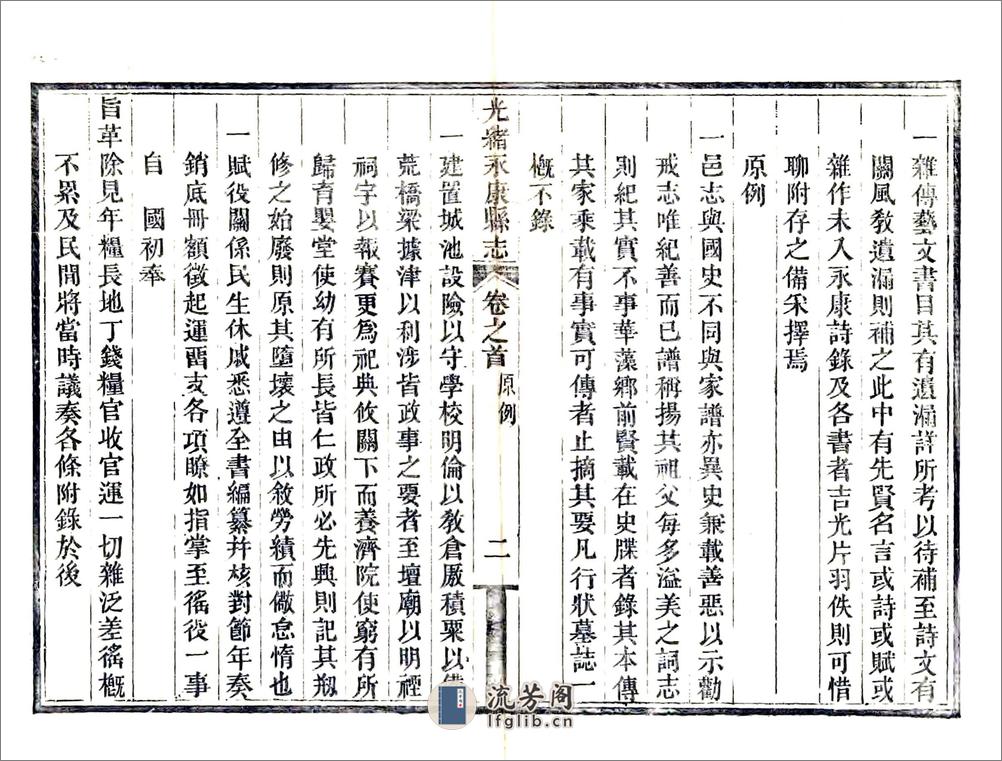 一雜傳藝文書目其有遺漏詳所考以待補至詩文有
關風敎遺漏則補之此中有先賢名言或詩或賦或
雜作未入永康詩錄及各書者吉光片羽佚則可惜
聊附存之備采擇焉
原例
一邑志與國史不同與家譜亦異史兼載善惡以示勸
戒志唯紀善而已譜稱揚其祖父每多溢美之詞志
則紀其實不事華藻鄉前賢載在史牒者錄其本傳
其家乘載有事實可傳者止摘其要凡行狀墓誌一
槪不錄
光緒永康縣志 卷之首 原例 二
一建置城池設險以守學校明倫以敎倉厫積粟以備
荒橋梁據津以利涉皆政事之要者至壇廟以明禋
祠宇以報賽更爲祀典攸關下而養濟院使窮有所
歸育嬰堂使幼有所長皆仁政所必先興則記其刱
修之始廢則原其墮壞之由以敘勞績而儆怠惰也
一賦役關係民生休戚悉遵全書編纂幷核對節年奏
銷底冊額徵起運畱支各項瞭如指掌至徭役一事
自 國初奉
旨革除見年糧長地丁錢糧官收官運一切雜泛差徭槪
不累及民間將當時議奏各條附錄於後
流芳阁
lfglib.cn